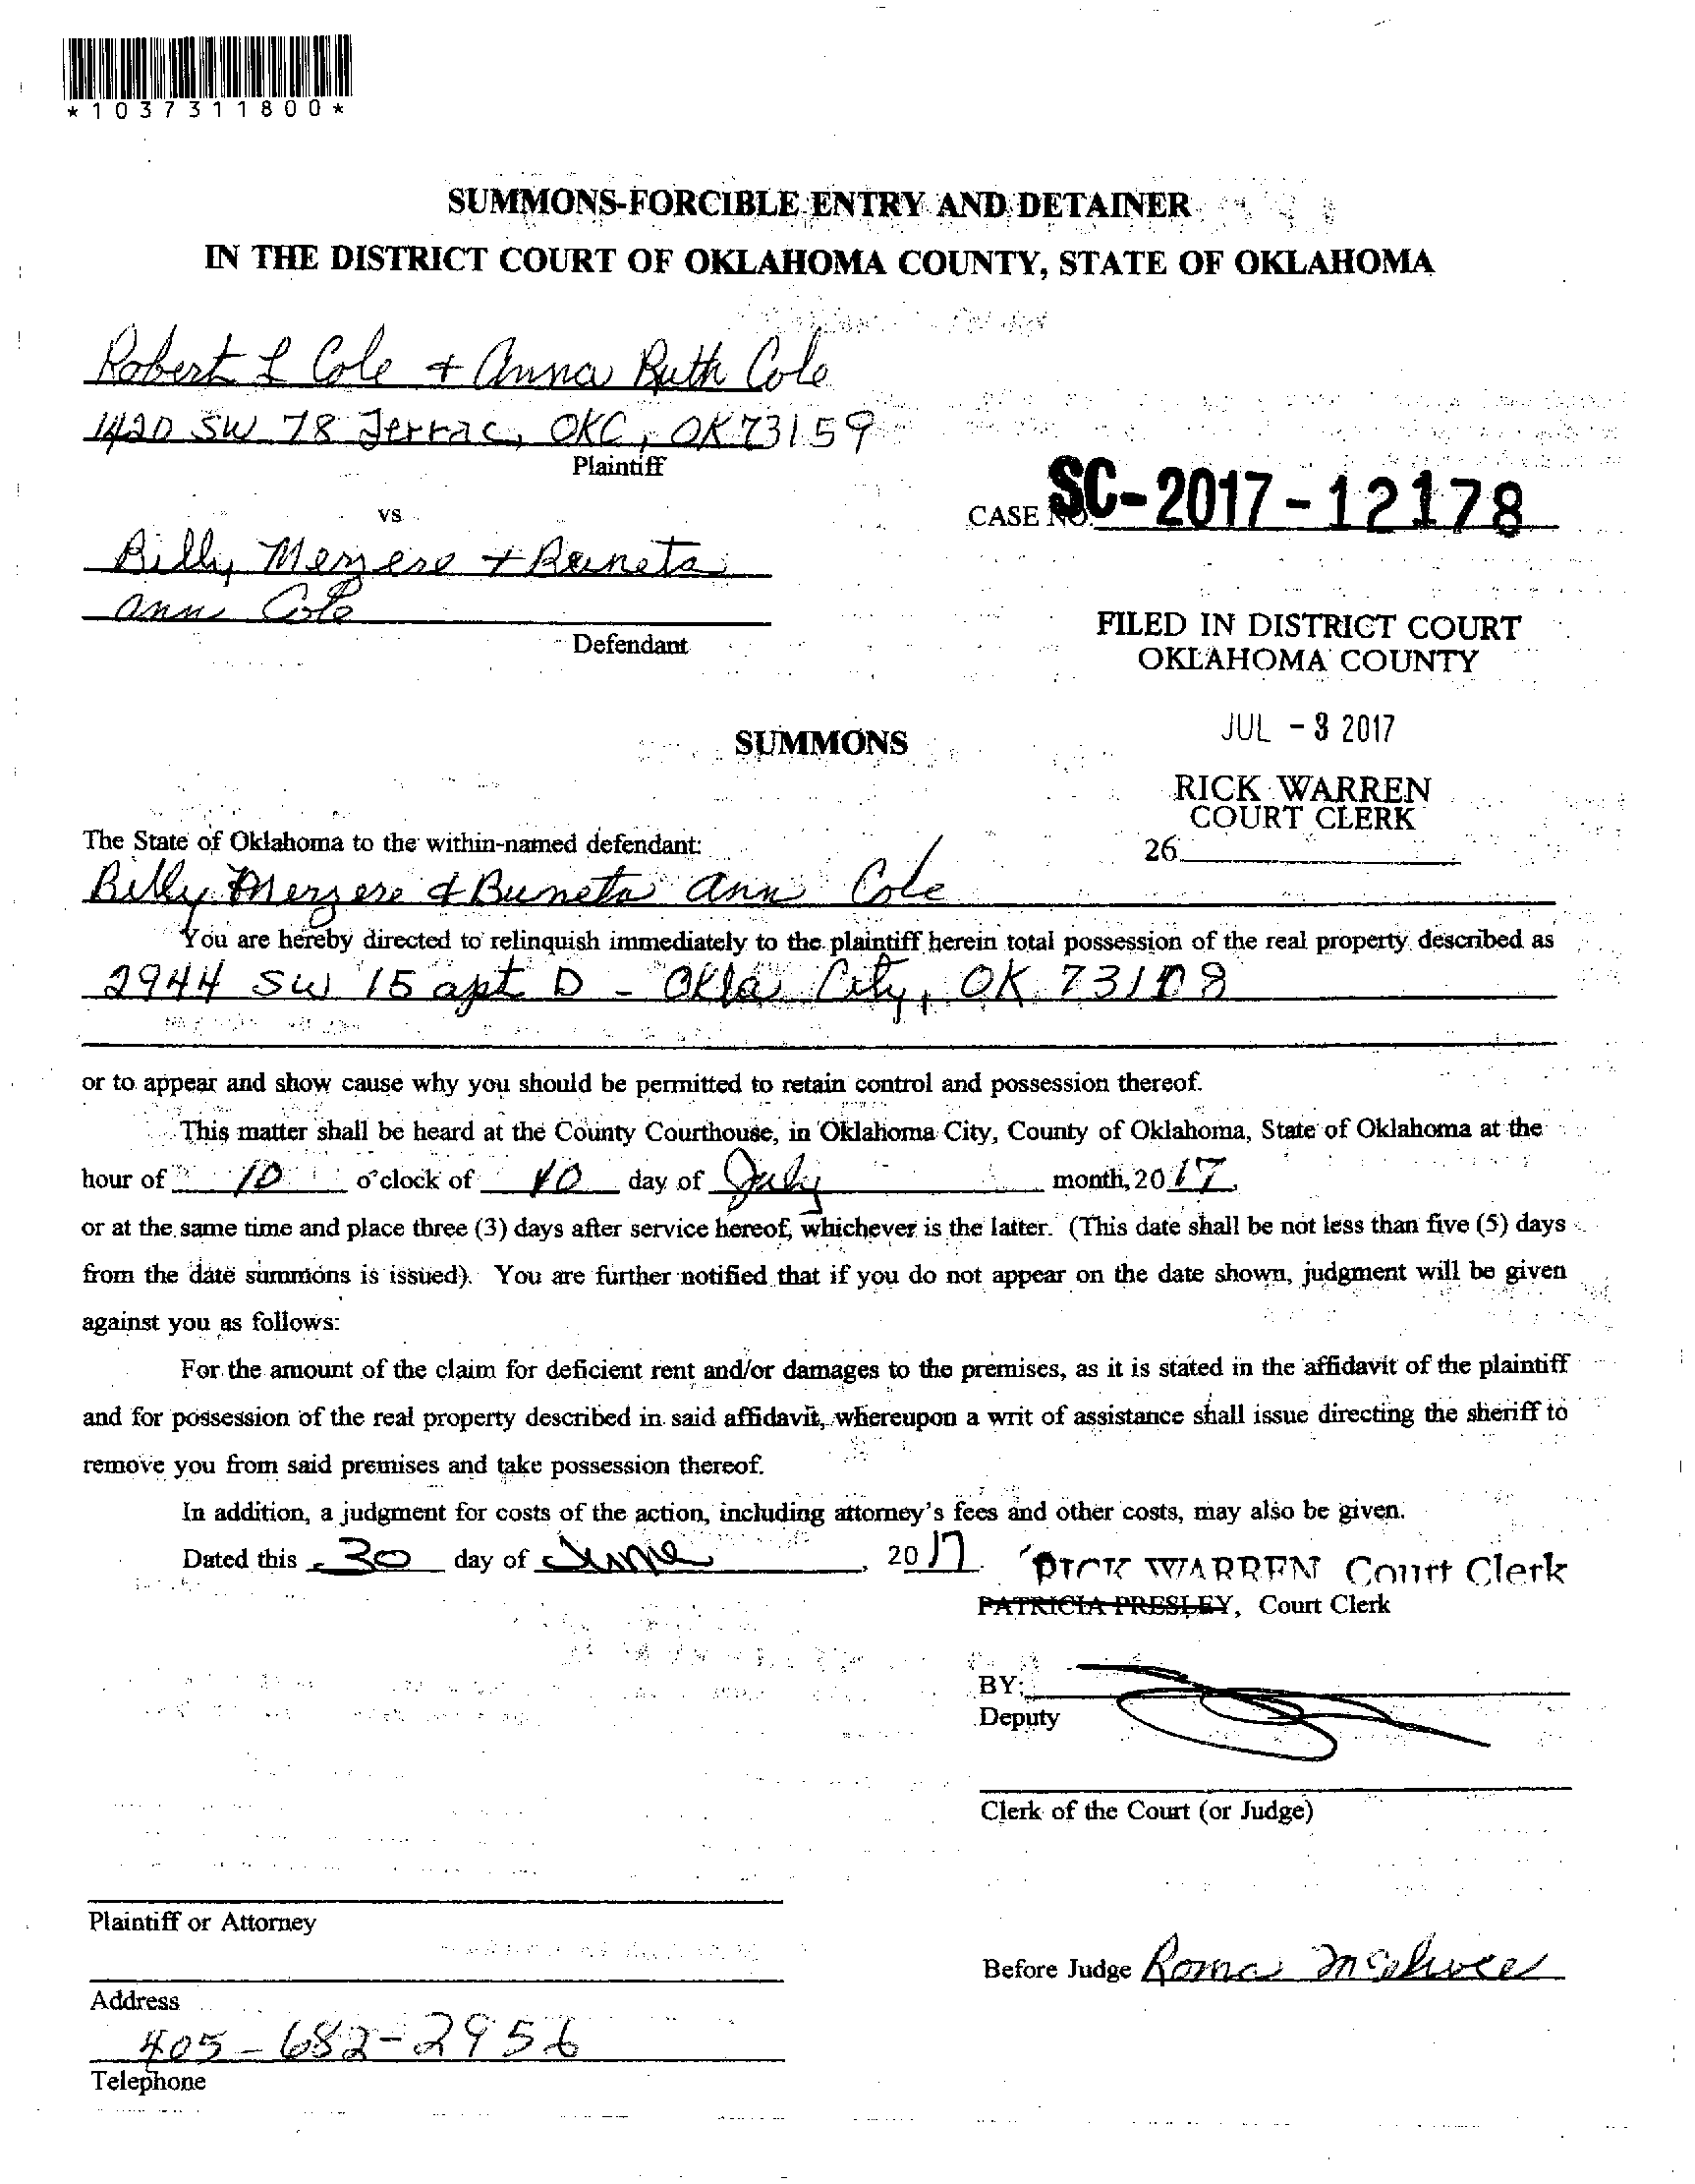 *1037311800*
SUMMONS-FORCIBLE ENTRY AND DETAINER
IN THE DISTRICT COURT OF OKLAHOMA COUNTY, STATE OF OKLAHOMA
Robert L Cole + Anna Ruth Cole
1420 SW 78 Terrac, OKC, OK 73159
Plaintiff
vs
CASE NO. SC-2017-12178
Billy +
Ann Cole
Defendant
FILED IN DISTRICT COURT
OKLAHOMA COUNTY
JUL -3 2017
SUMMONS
RICK WARREN
COURT CLERK
26
The State of Oklahoma to the within-named defendant:
Billy & Ann Cole
You are hereby directed to relinquish immediately to the plaintiff herein total possession of the real property described as
2944 SW 15 apt D - Okla City, OK 73108
or to appear and show cause why you should be permitted to retain control and possession thereof.
This matter shall be heard at the County Courthouse, in Oklahoma City, County of Oklahoma, State of Oklahoma at the
hour of 10 o'clock of 10 day of July month, 2017,
or at the same time and place three (3) days after service hereof, whichever is the latter. (This date shall be not less than five (5) days
from the date summons is issued). You are further notified that if you do not appear on the date shown, judgment will be given
against you as follows:
For the amount of the claim for deficient rent and/or damages to the premises, as it is stated in the affidavit of the plaintiff
and for possession of the real property described in said affidavit, whereupon a writ of assistance shall issue directing the sheriff to
remove you from said premises and take possession thereof.
In addition, a judgment for costs of the action, including attorney's fees and other costs, may also be given.
Dated this 30 day of June, 2017.
RICK WARREN Court Clerk
PATRICIA PRESLEY, Court Clerk
BY:
Deputy
Clerk of the Court (or Judge)
Plaintiff or Attorney
Before Judge Roma
Address
405-682-2956
Telephone